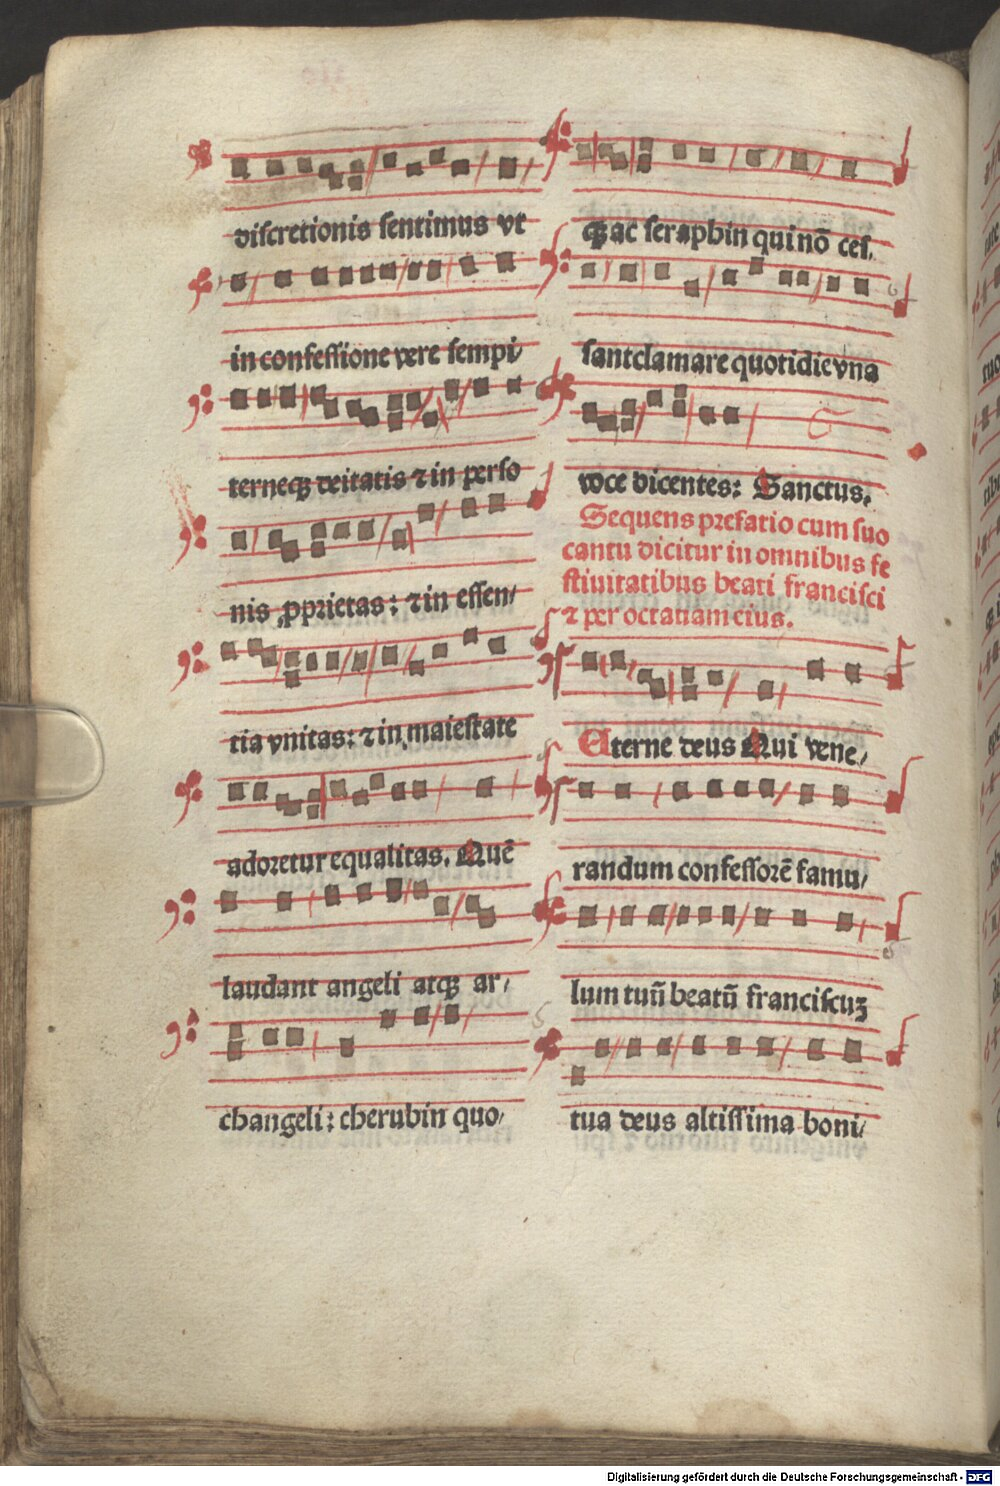 discretionis sentimus vt
in confessione vere sempi/
terneqꝫ deitatis ⁊ in perso
nis ꝓprietas: ⁊ in essen/
tia vnitas: ⁊ in maiestate
adoretur equalitas. Quē
laudant angeli atqꝫ ar/
changeli: cherubin quo/
qꝫ ac seraphin qui nō ces.
sant clamare quotidie vna
voce dicentes: Sanctus.
Sequens prefatio cum suo
cantu dicitur in omnibus fe
stiuitatibus beati francisci
⁊ per octauam eius.
Eterne deus Qui vene/
randum confessorē famu/
lum tuū beatū franciscuꝫ
tua deus altissima boni/
Digitalisierung gefördert durch die Deutsche Forschungsgemeinschaft - DFG